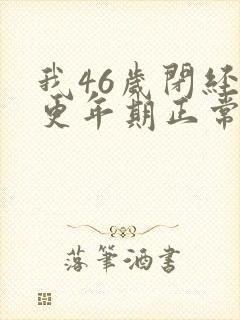 我46歲閉經
更年期正常
落筆酒書